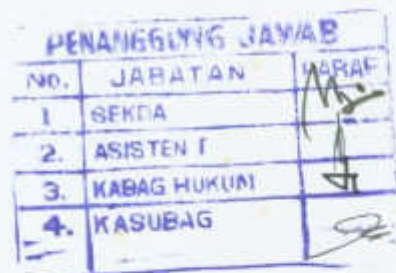 PENANGGUNG JAWAB
No. JABATAN PARAF
1 SEKDA
2. ASISTEN I
3. KABAG HUKUM
4. KASUBAG